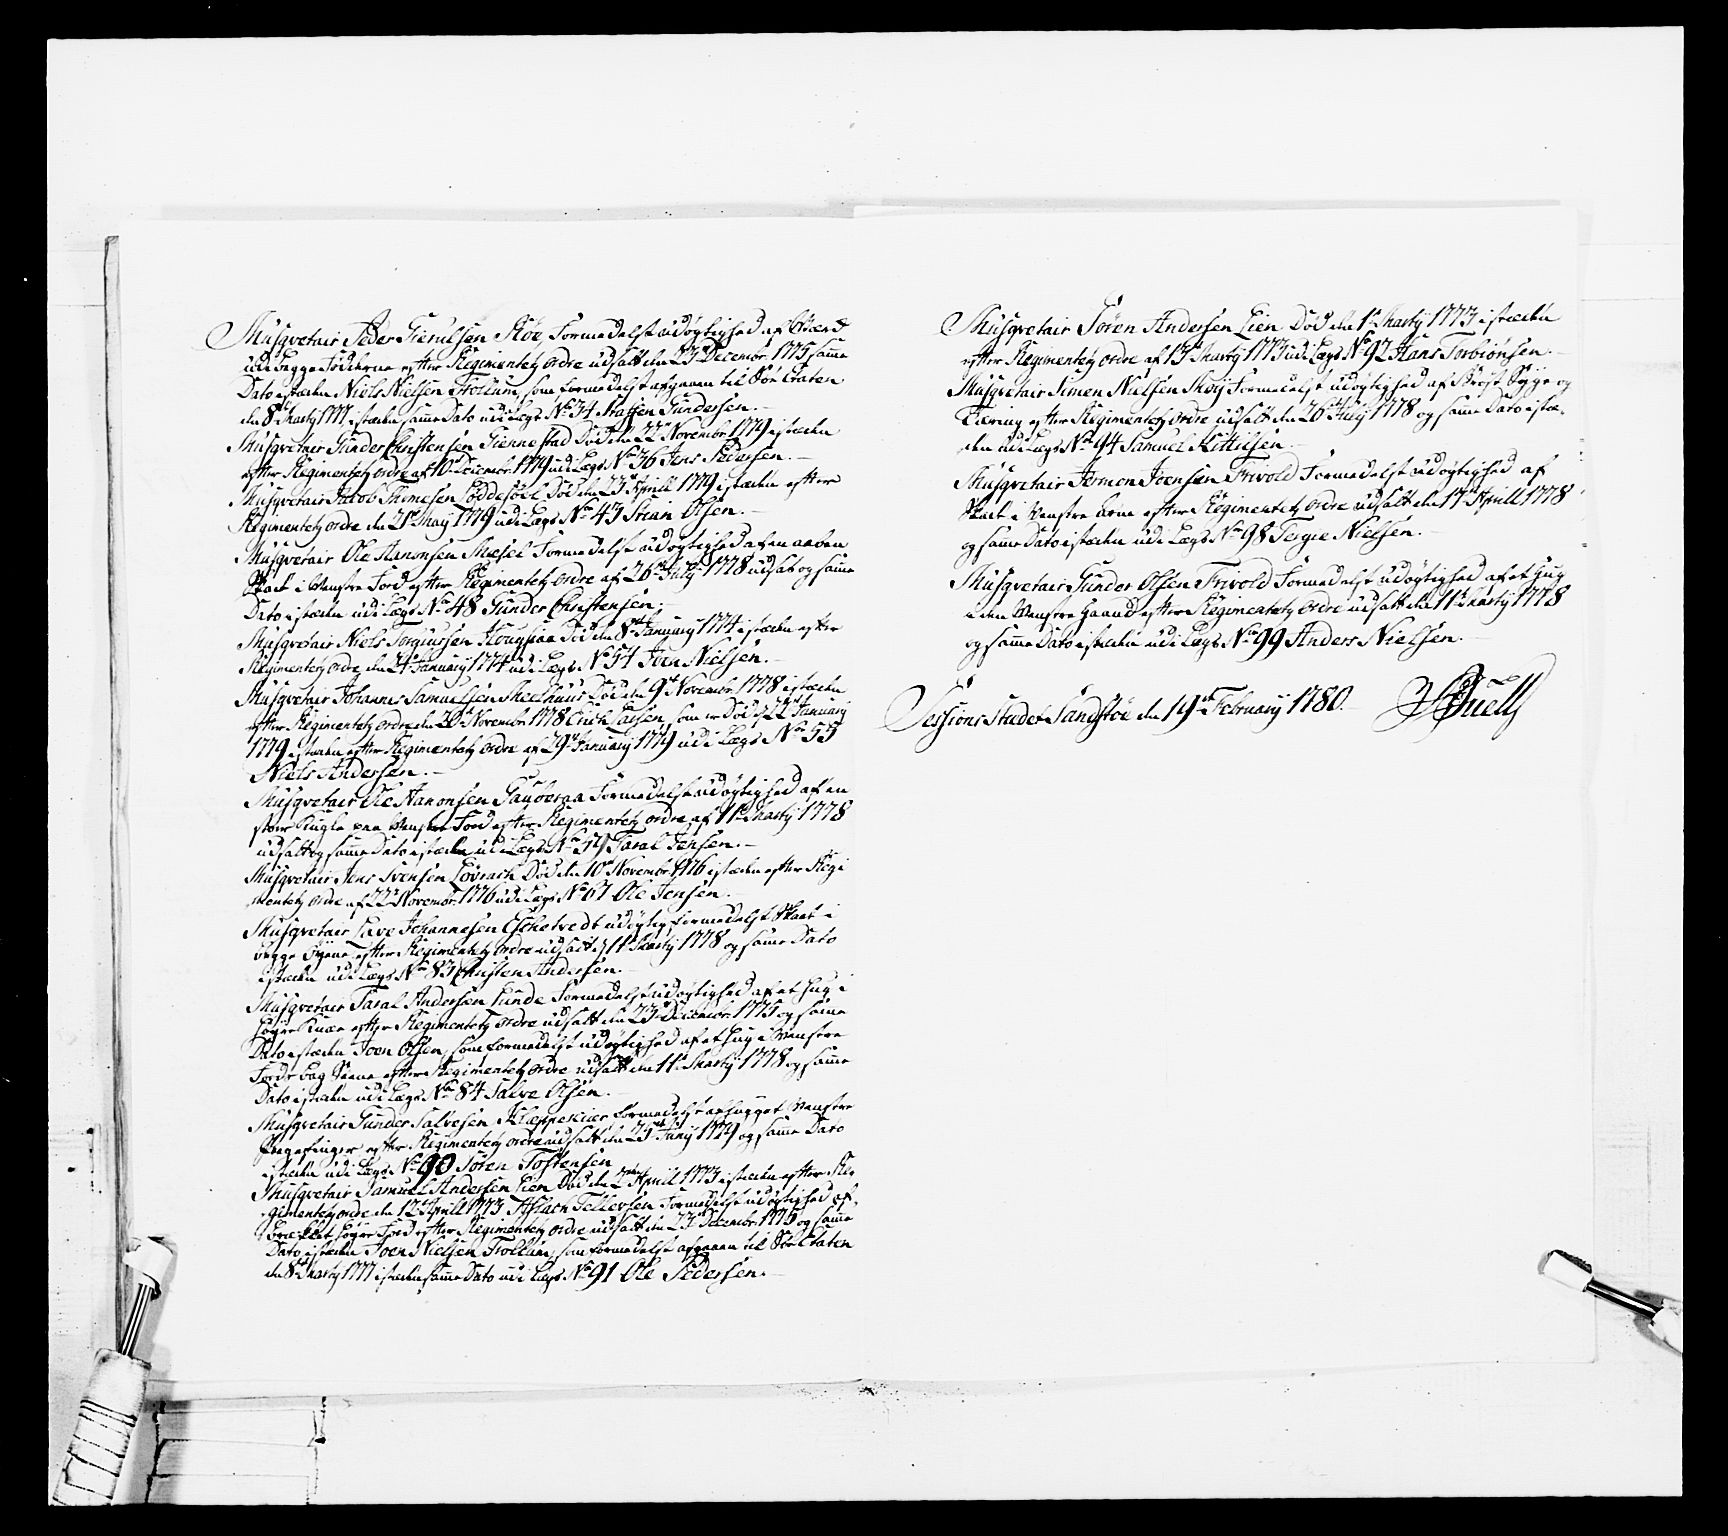 Musqvetair Peder Gierulsen Støe, Formedelst udøgtighed af Værk
udi begge Fødderne efter Regimentetz ordre udsatt den 23de Decembr 1775 samme
Dato istæden Niels Nielsen Trollum, som formedelst afgaaen til Søe Etaten
den 8de Marty 1777 istæden samme Dato udi Lægs No 34 Staffen Gundersen.
Musqvetair Gunder Christensen Giennestad Død den 22de Novembr 1779 istæden
efter Regimentetz ordre af 10de Decembr 1779 udi Lægs No 36 Jens Pedersen.
Musqvetair Jacob Thomesen Loddesøel Død den 23de Aprill 1779 istæden efter
Regimentetz ordre den 21de May 1779 udi Lægs No 43 Stian Olsen.
Musqvetair Ole Aanonsen Messel Formedelst udøgtighed af en aaben
Skade i Venstre Foed efter Regimentetz ordre af 26de July 1778 udsat og samme
Dato istæden udi Lægs No 48 Gunder Christensen,
Musqvetair Niels Jorgiursen Død den 8de January 1774 istæden efter
Regimentetz ordre den 24de January 1774 udi Lægs No 54 Joen Nielsen.
Musqvetair Johannes Samuelsen Meelhuus Død den 9de Novembr 1778 istæden
efter Regimentetz ordre den 20de Novembr 1778 Erich Larsen, som er Død d 22de January
1779 istæden efter Regimentetz ordre af 29de January 1779 udi Lægs No 55
Niels Andersen.
Musqvetair Ole Aanonsen Gauberaa Formedelst udøgtighed af en
stoer Kugle paa Venstre Foed efter Regimentetz ordre af 11te Marty 1778
udsatt og samme Dato istæden udi Lægs No 59 Taral Jensen.
Musqvetair Jens Svensen Løvrach Død den 10de Novembr 1776 istæden efter Regi
mentetz ordre af 22de Novembr 1776 udi Lægs No 67 Ole Jensen.
Musqvetair Lave Johannesen Eschetvedt udøgtig formedelst Skade i
begge Øynene efter Regimentetz ordre udsatt d 11te Marty 1778 og samme Dato
istæden udi Lægs No 83 Christen Andersen.
Musqvetair Taral Andersen Lunde Formedelst udøgtighed af et Hug i
høyre Knæe efter Regimentetz ordre udsatt den 23de Decembr 1775 og samme
Dato istæden Joen Olsen, som formedelst udøgtighed af et Hug i Venstre
Foeds efter Regimentetz ordre udsatt den 11te Marty 1778 og samme
Dato istæden udi Lægs No 84 Salve Olsen.
Musqvetair Gunder Salvesen Kleppekiær, formedelst afhugget Venstre
Pegefinger efter Regimentetz ordre udsatt den 25de Juny 1779 og samme Dato
istæden udi Lægs No 90 Søren Tostensen
Musqvetair Samuel Andersen Lien Død den 2den Aprill 1773 istæden efter Re
gimentetz ordre den 12te Aprill 1773 Aslach Tellevsen Formedelst udøgtighed af
brækket høyre Foed efter Regimentetz ordre udsatt den 23de Decembr 1775 og samme
Dato istæden Joen Nielsen Trollum, som formedelst afgaaen til Søe Etaten
den 8de Marty 1777 istæden samme Dato udi Lægs No 91 Ole Pedersen.
Musqvetair Søren Andersen Lien Død den 1te Marty 1773 istæden
efter Regimentetz ordre af 15de Marty 1773 udi Lægs No 92 Hans Torbiønsen.
Musqvetair Simen Nielsen Moy Formedelst udøgtighed af Bryst Syge og
Tæring efter Regimentetz ordre udsatt den 26de July 1778 og samme Dato istæ-
den udi Lægs No 94 Samuel Kittilsen.
Musqvetair Jermon Joensen Trivold Formedelst udøgtighed af
Skade i Venstre Arm efter Regimentetz ordre udsatt den 17de Aprill 1778
og samme Dato istæden udi Lægs No 98 Tergie Nielsen.
Musqvetair Gunder Olsen Trivold Formedelst udøgtighed af et Hug
i den Venstre Haand efter Regimentetz ordre udsatt den 11te Marty 1778
og samme Dato istæden udi Lægs No 99 Anders Nielsen.
Sessions Stædet Sandstøe den 19de February 1780. Buell